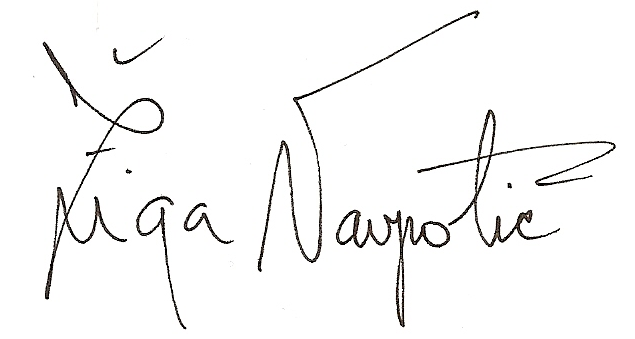 Žiga Navpotič